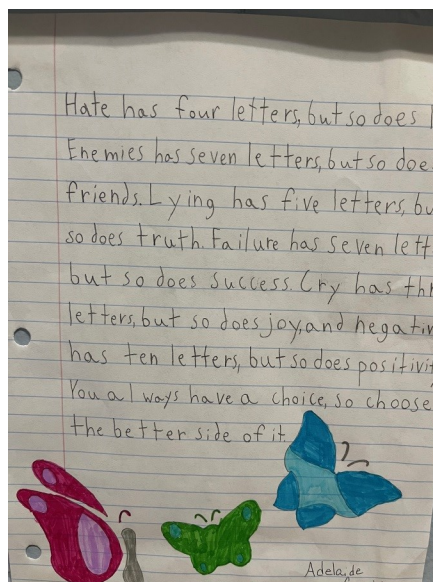 Hate has four letters, but so does
Enemies has seven letters, but so
friends. Lying has five letters,
so does truth. Failure has seven
but so does success. Cry has
letters, but so does joy, and
has ten letters, but so does
You always have a choice, so choose
the better side of it.
Adelaide